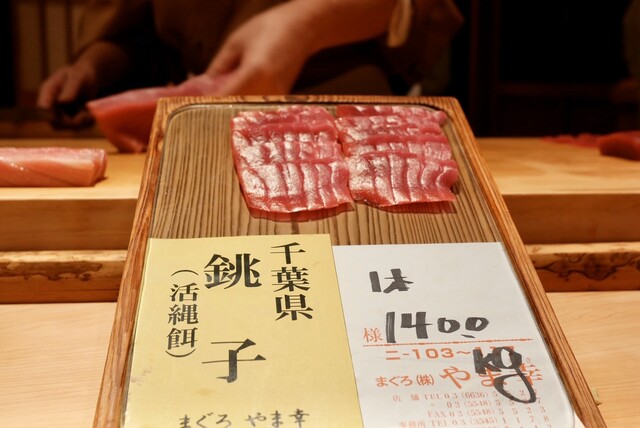 千葉県
銚子
(活縄餌)
まぐろ やま幸
は
様 140.0 kg
ニ-103〜
まぐろ(株)やま幸
店舗 TEL 03(6636)
〃 03(5548)
FAX 03(5548)
事務所 TEL 03(3545)